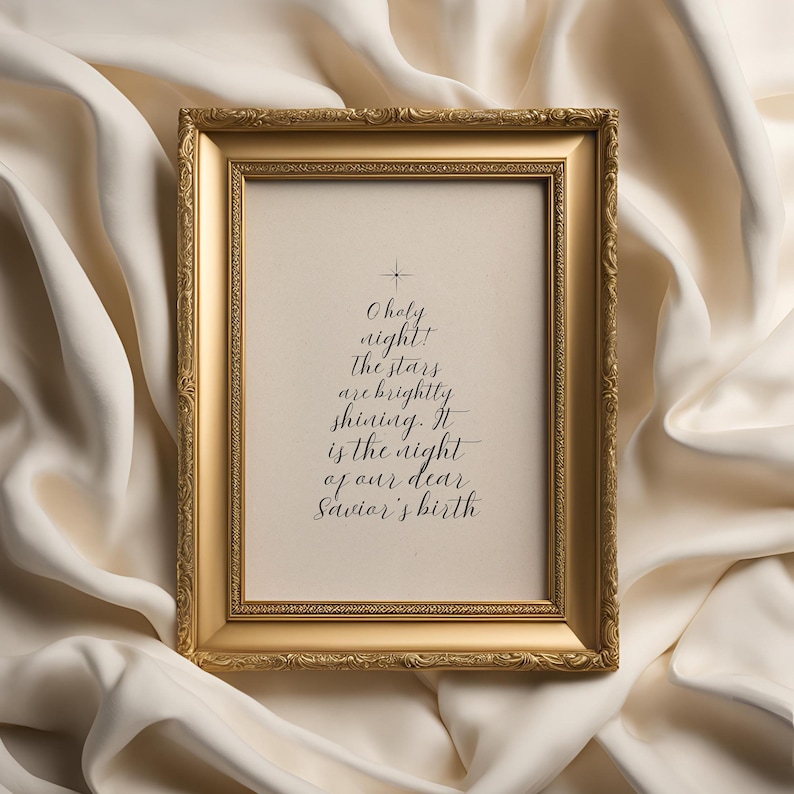 O holy
night!
The stars
are brightly
shining. It
is the night
of our dear
Savior's birth